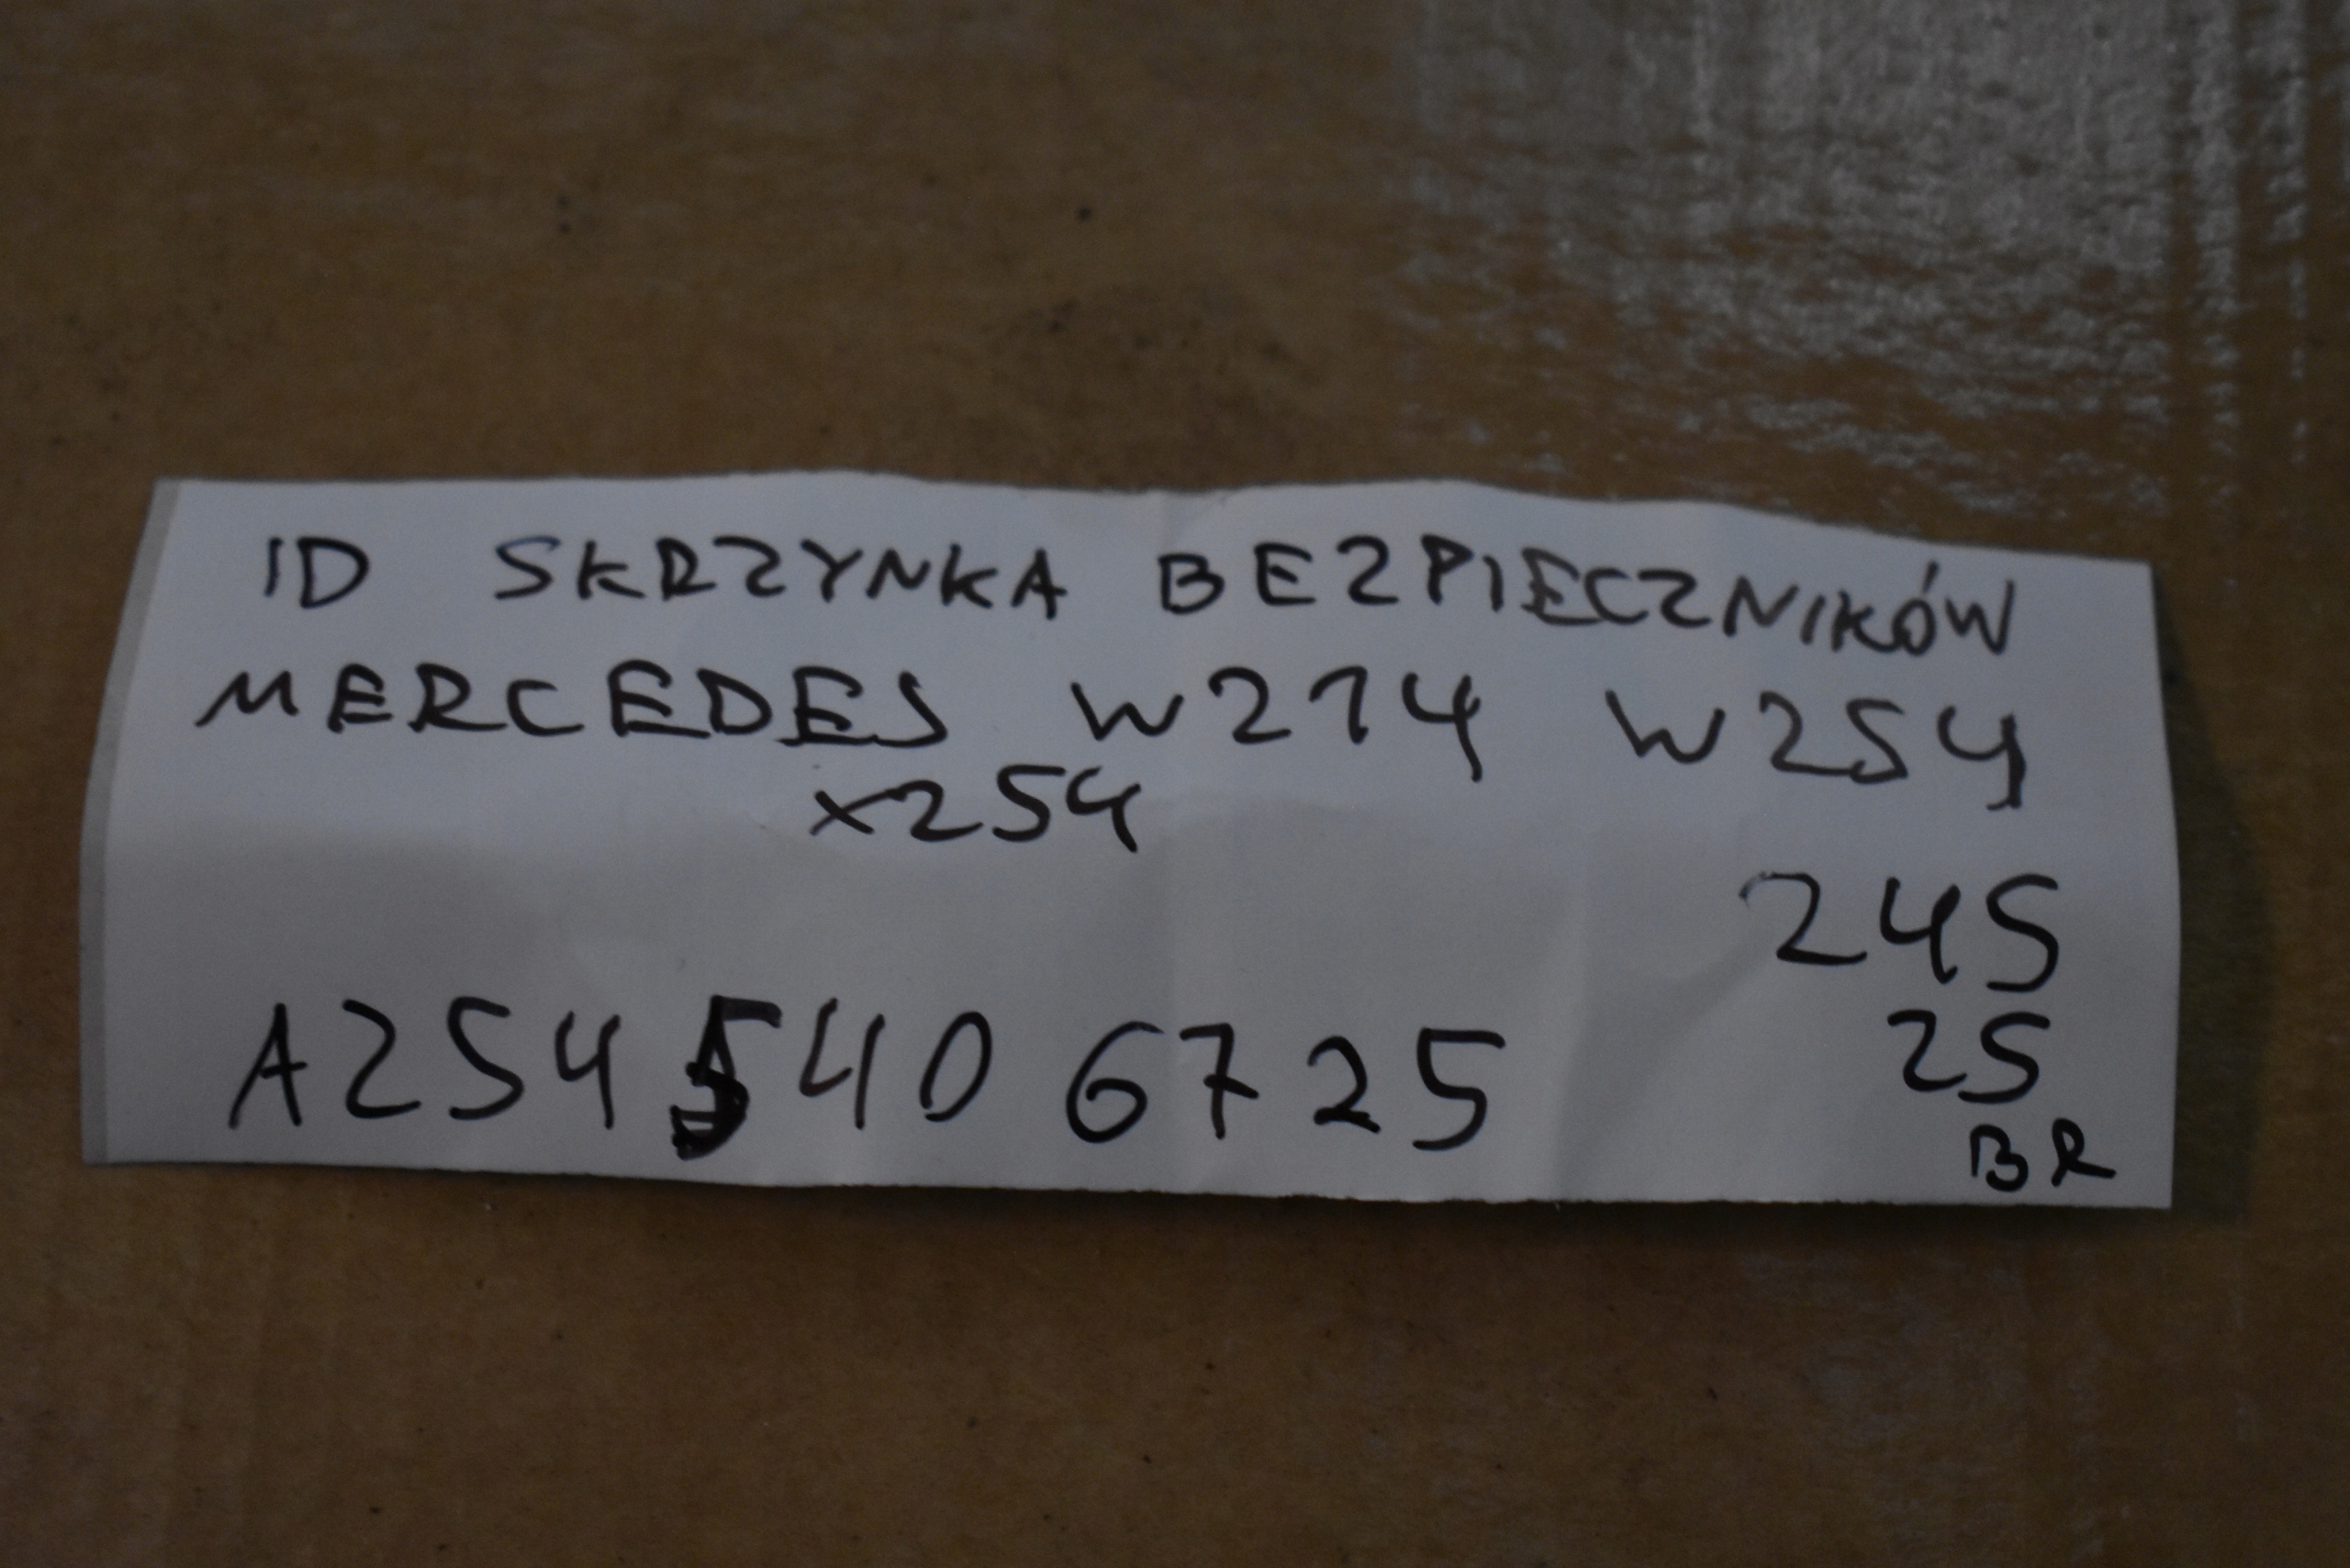 ID SKRZYNKA BEZPIECZNIKÓW
MERCEDES W214 W254
X254
245
A254 540 6725
25
BR